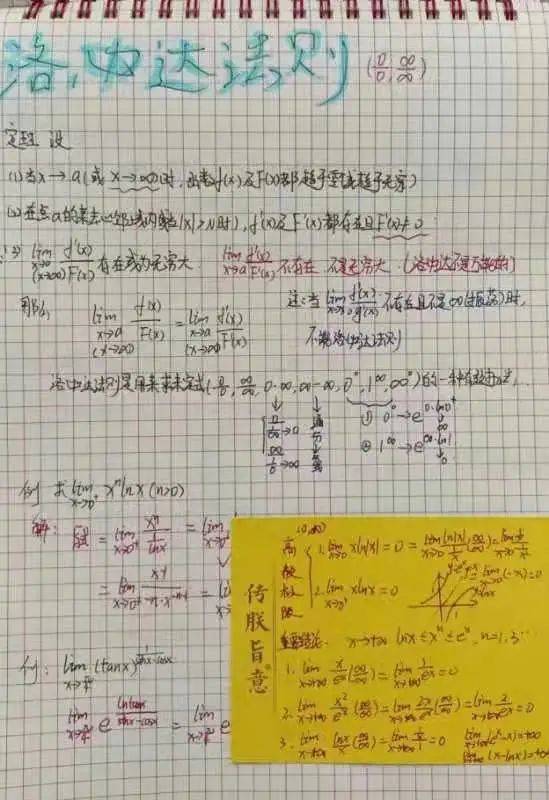 洛必达法则 (0/0, ∞/∞)
定理 设
(1) 当x→a(或x→∞)时, 函数f(x)及F(x)都趋于零(或趋于无穷)
(2) 在点a的某去心邻域内(或|x|>N时), f'(x)及F'(x)都存在且F'(x)≠0
(3) lim x→a (x→∞) f'(x)/F'(x) 存在或为无穷大 lim x→a f'(x)/F'(x) 不存在 不是无穷大 (洛必达不是万能的)
那么 lim x→a (x→∞) f(x)/F(x) = lim x→a (x→∞) f'(x)/F'(x)
注: 当 lim f'(x)/g'(x) 不存在且不是∞(振荡)时,
不能洛必达法则
洛必达法则是用来求未定式(0/0, ∞/∞, 0·∞, ∞-∞, 0⁰, 1^∞, ∞⁰)的一种有效方法
通分
① 0⁰→e^(0·ln0)
② 1^∞→e^(∞·ln1)
例 求 lim x→0⁺ xⁿlnx (n>0)
解: 原式 =
例: lim x→π/4 (tanx)^(1/(sinx-cosx))
lim x→π/4 e^(lntanx/(sinx-cosx)) = lim x→π/4 e
传朕旨意
1. lim x→0 xln|x| = 0
2. lim x→0⁺ xlnx = 0
重要结论: x→+∞ lnx ≤ xⁿ ≤ eˣ, n=1,3…
1. lim x→+∞ x/eˣ (∞/∞) = lim x→+∞ 1/eˣ = 0
2. lim x→+∞ x²/eˣ (∞/∞) = lim x→+∞ 2x/eˣ (∞/∞) = lim x→+∞ 2/eˣ = 0
3. lim x→+∞ lnx/x (∞/∞) = lim x→+∞ = 0
lim x→+∞ (eˣ-x) = +∞
lim x→+∞ (x-lnx) = +∞